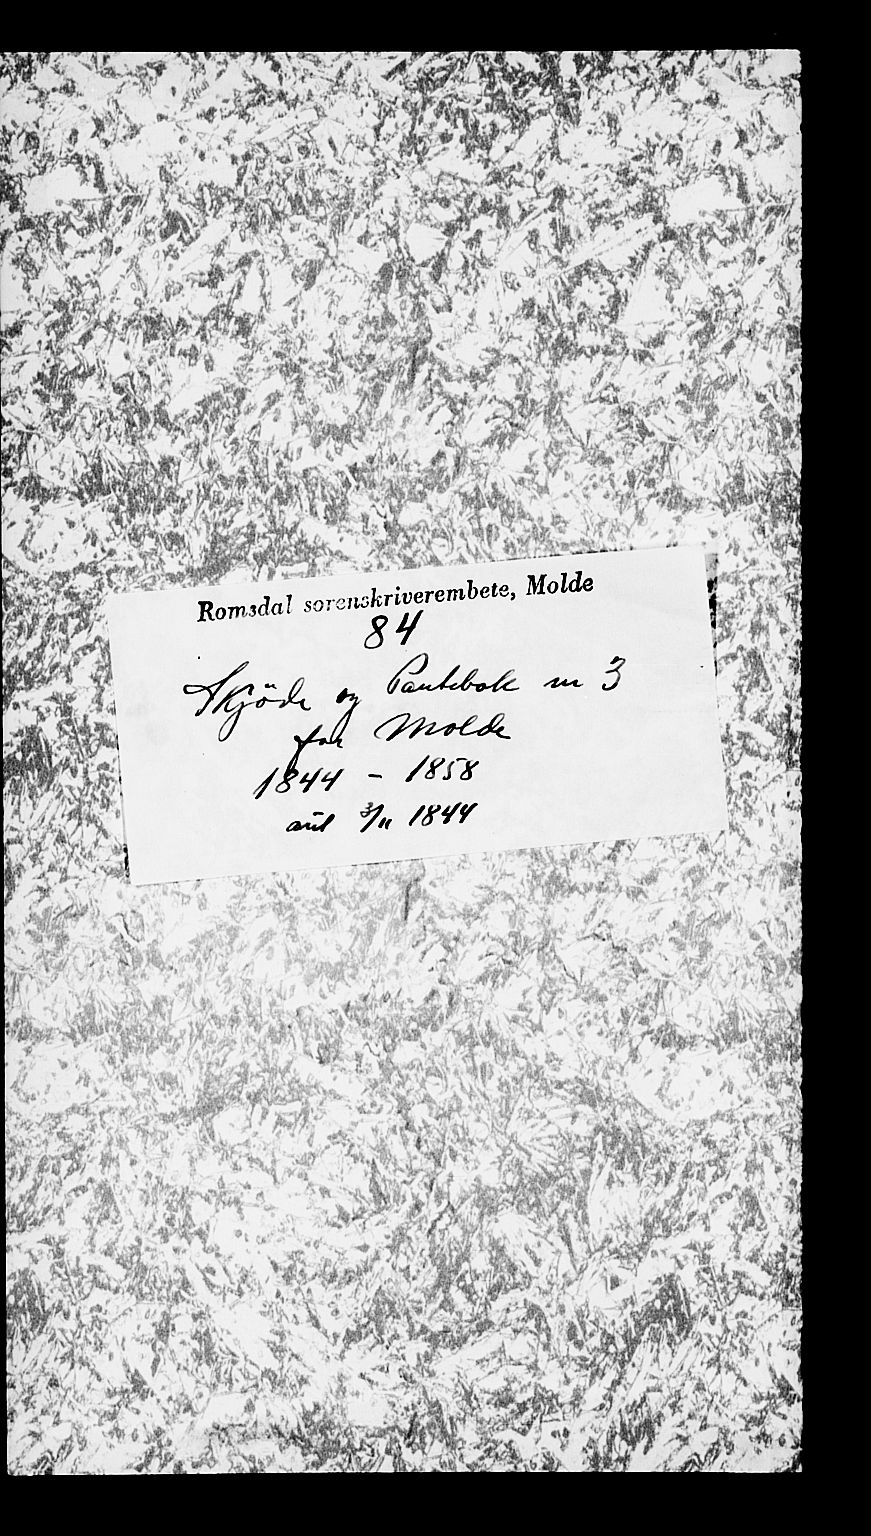 Romsdal sorenskriverembete, Molde
84
Skjöde og Pantebok nr 3
for Molde
1844 - 1858
aut 3/11 1844